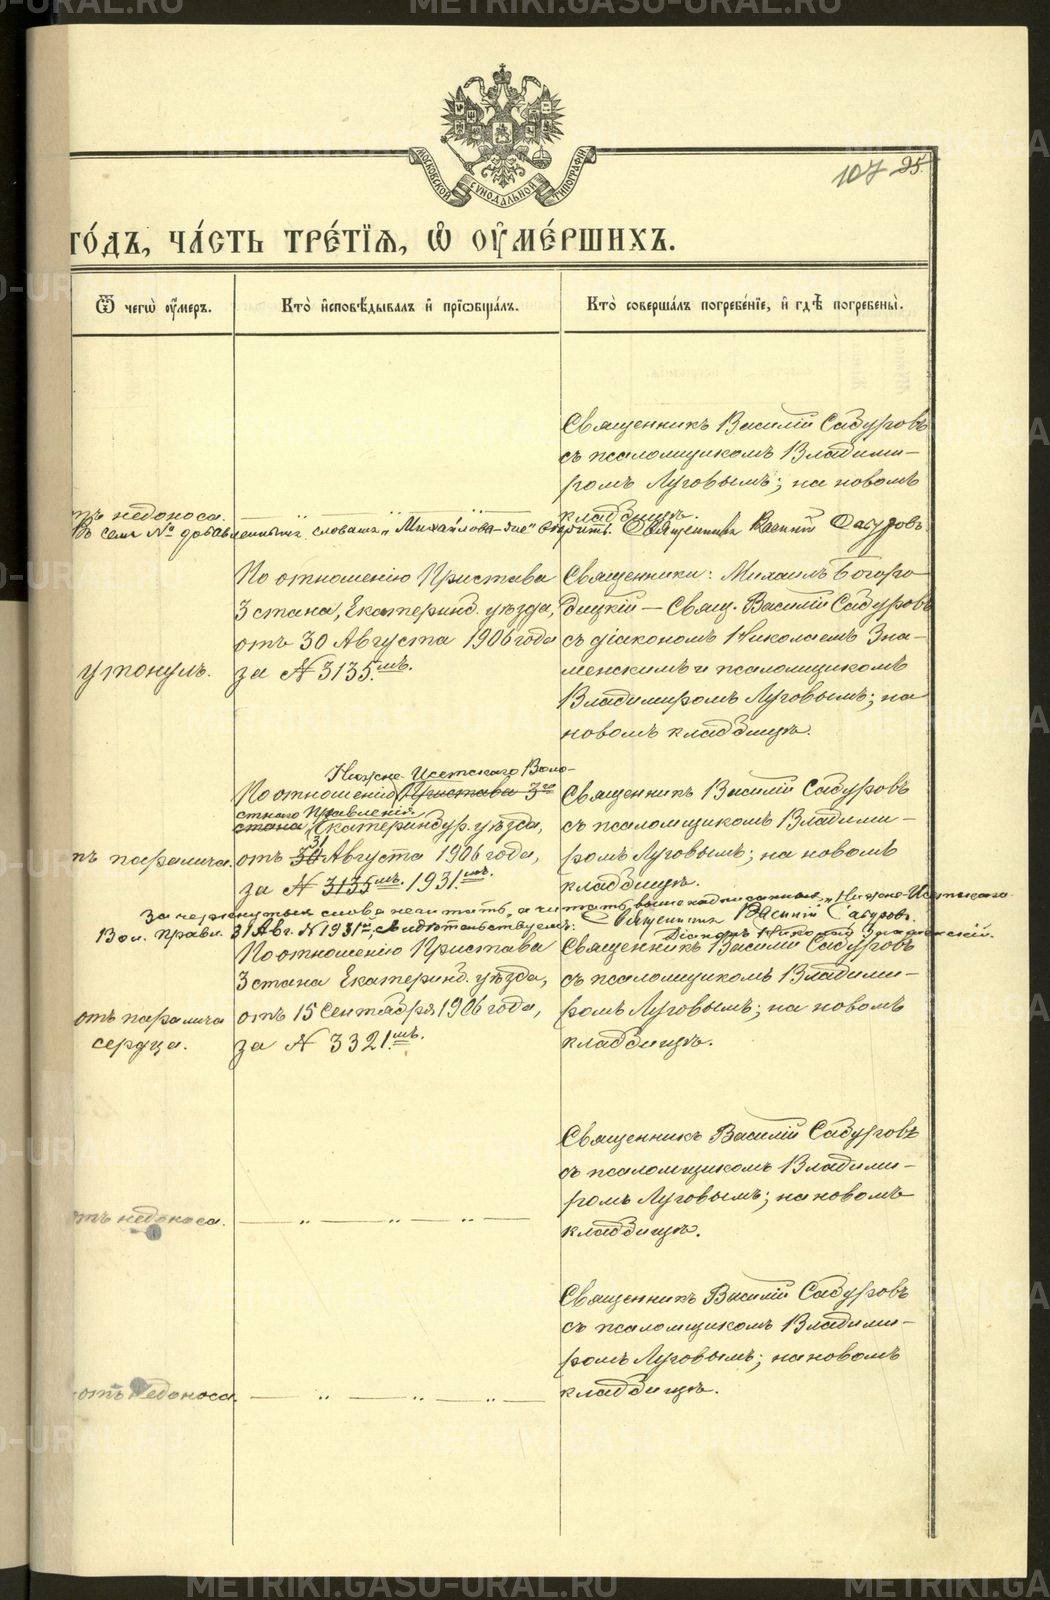 МОСКОВСКОЙ СѴНОДАЛЬНОЙ ТИПОГРАФІИ
107 95.
ГО́ДЪ, ЧА́СТЬ ТРЕ́ТЇѦ, Ѽ ОУ҆МЕ́РШИХЪ.
Ѿ чегѡ̀ оу҆́меръ.
Кто̀ и҆сповѣ́дывалъ и҆ прїѡбща́лъ.
Кто̀ соверша́лъ погребе́нїе, и҆ гдѣ̀ погребены̀.
Священникъ Василій Сабуровъ
съ псаломщикомъ Владими-
ромъ Луговымъ; на новомъ
тъ недоноса. — „ — „ — кладбищѣ.
Въ семъ № добавленнымъ словамъ „Михайлова-зне" вѣрить. Священникъ Василій Сабуровъ
утонулъ.
По отношенію Пристава
3 стана, Екатеринб. уѣзда,
отъ 30 Августа 1906 года
за № 3135.мъ.
Священники: Михаилъ Богоро
дицкій — Свящ. Василій Сабуровъ
съ діакономъ Николаемъ Зна-
менскимъ и псаломщикомъ
Владимиромъ Луговымъ; на
новомъ кладбищѣ.
тъ паралича.
Нижне-Исетскаго Воло-
По отношенію Пристава 3го
стнаго Правленія
стана Екатеринбур. уѣзда,
31
отъ 30 Августа 1906 года,
за № 3135мъ. 1931.мъ.
Священникъ Василій Сабуровъ
съ псаломщикомъ Владими-
ромъ Луговымъ; на новомъ
кладбищѣ.
Зачеркнутыя слова не читать, а читать выше надписанныя, „Нижне-Исетскаго
Вол. Правл. 31 Авг. № 1931", свидѣтельствуемъ: Священникъ Василій Сабуровъ.
Діаконъ Николай Знаменскій.
отъ паралича
сердца.
По отношенію Пристава
3 стана Екатеринб. уѣзда,
отъ 15 Сентября 1906 года,
за № 3321.мъ.
Священникъ Василій Сабуровъ
съ псаломщикомъ Владими-
ромъ Луговымъ; на новомъ
кладбищѣ.
отъ недоноса. — „ — „ — „ —
Священникъ Василій Сабуровъ
съ псаломщикомъ Владими-
ромъ Луговымъ; на новомъ
кладбищѣ.
отъ недоноса. — „ — „ — „ —
Священникъ Василій Сабуровъ
съ псаломщикомъ Владими-
ромъ Луговымъ; на новомъ
кладбищѣ.
METRIKI.GASU-URAL.RU